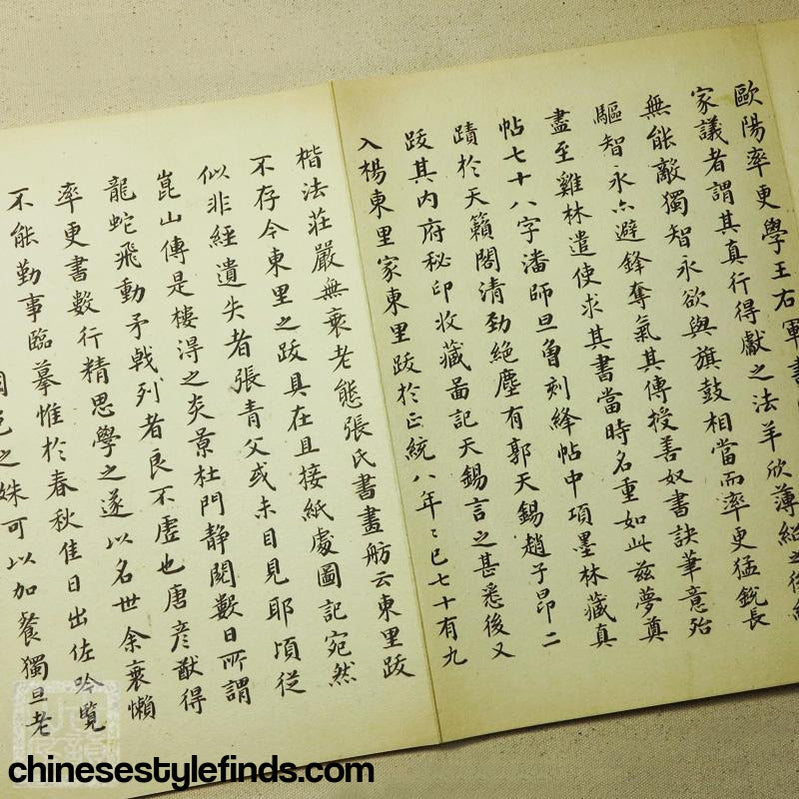 歐陽率更學王右軍書
家議者謂其真行得獻之法羊欣薄紹之後
無能敵獨智永欲與旗鼓相當而率更猛銳長
驅智永亦避鋒奪氣其傳授善奴書訣筆意殆
盡至雞林遣使求其書當時名重如此茲夢奠
帖七十八字潘師旦曾刻絳帖中項墨林藏真
蹟於天籟閣清勁絕塵有郭天錫趙子昂二
跋其內府秘印收藏圖記天錫言之甚悉後又
入楊東里家東里跋於正統八年年已七十有九
楷法莊嚴無衰老態張氏書畫舫云東里跋
不存今東里之跋具在且接紙處圖記宛然
似非經遺失者張青父或未目見耶頃從
崑山傳是樓淂之炎景杜門靜閱數日所謂
龍蛇飛動矛戟列者良不虛也唐彥猷得
率更書數行精思學之遂以名世余衰懶
不能勤事臨摹惟於春秋佳日出佐吟覽
之姝可以加餐獨旦老
chinesestylefinds.com